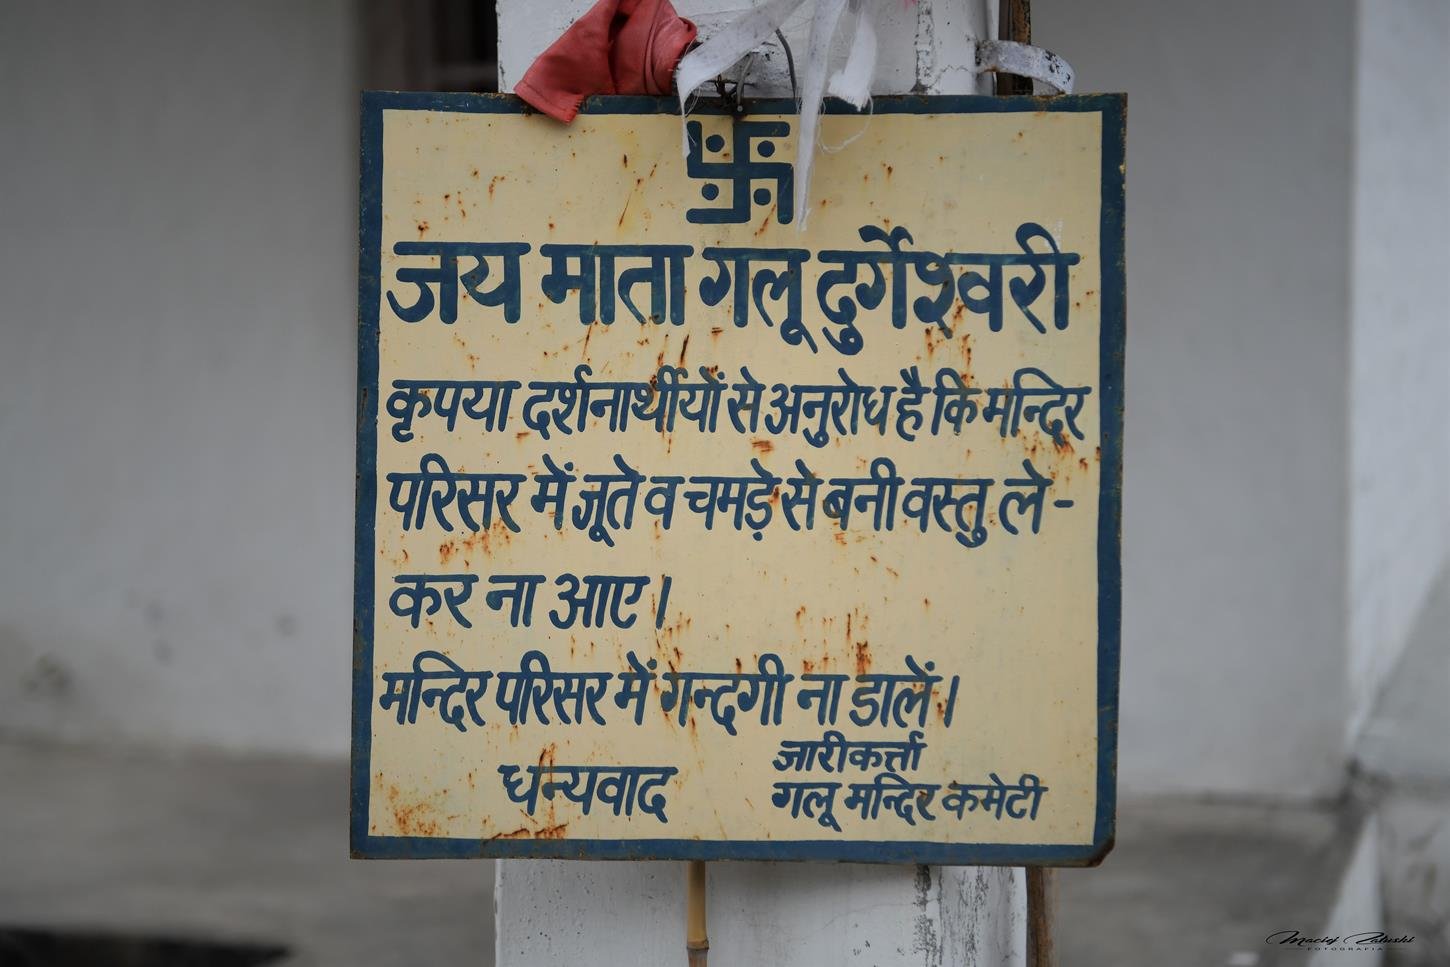 卐
जय माता गलू दुर्गेश्वरी
कृपया दर्शनार्थीयों से अनुरोध है कि मन्दिर
परिसर में जूते व चमड़े से बनी वस्तु ले-
कर ना आए।
मन्दिर परिसर में गन्दगी ना डालें।
धन्यवाद
जारीकर्त्ता
गलू मन्दिर कमेटी
Maciej Załuski
FOTOGRAFIA